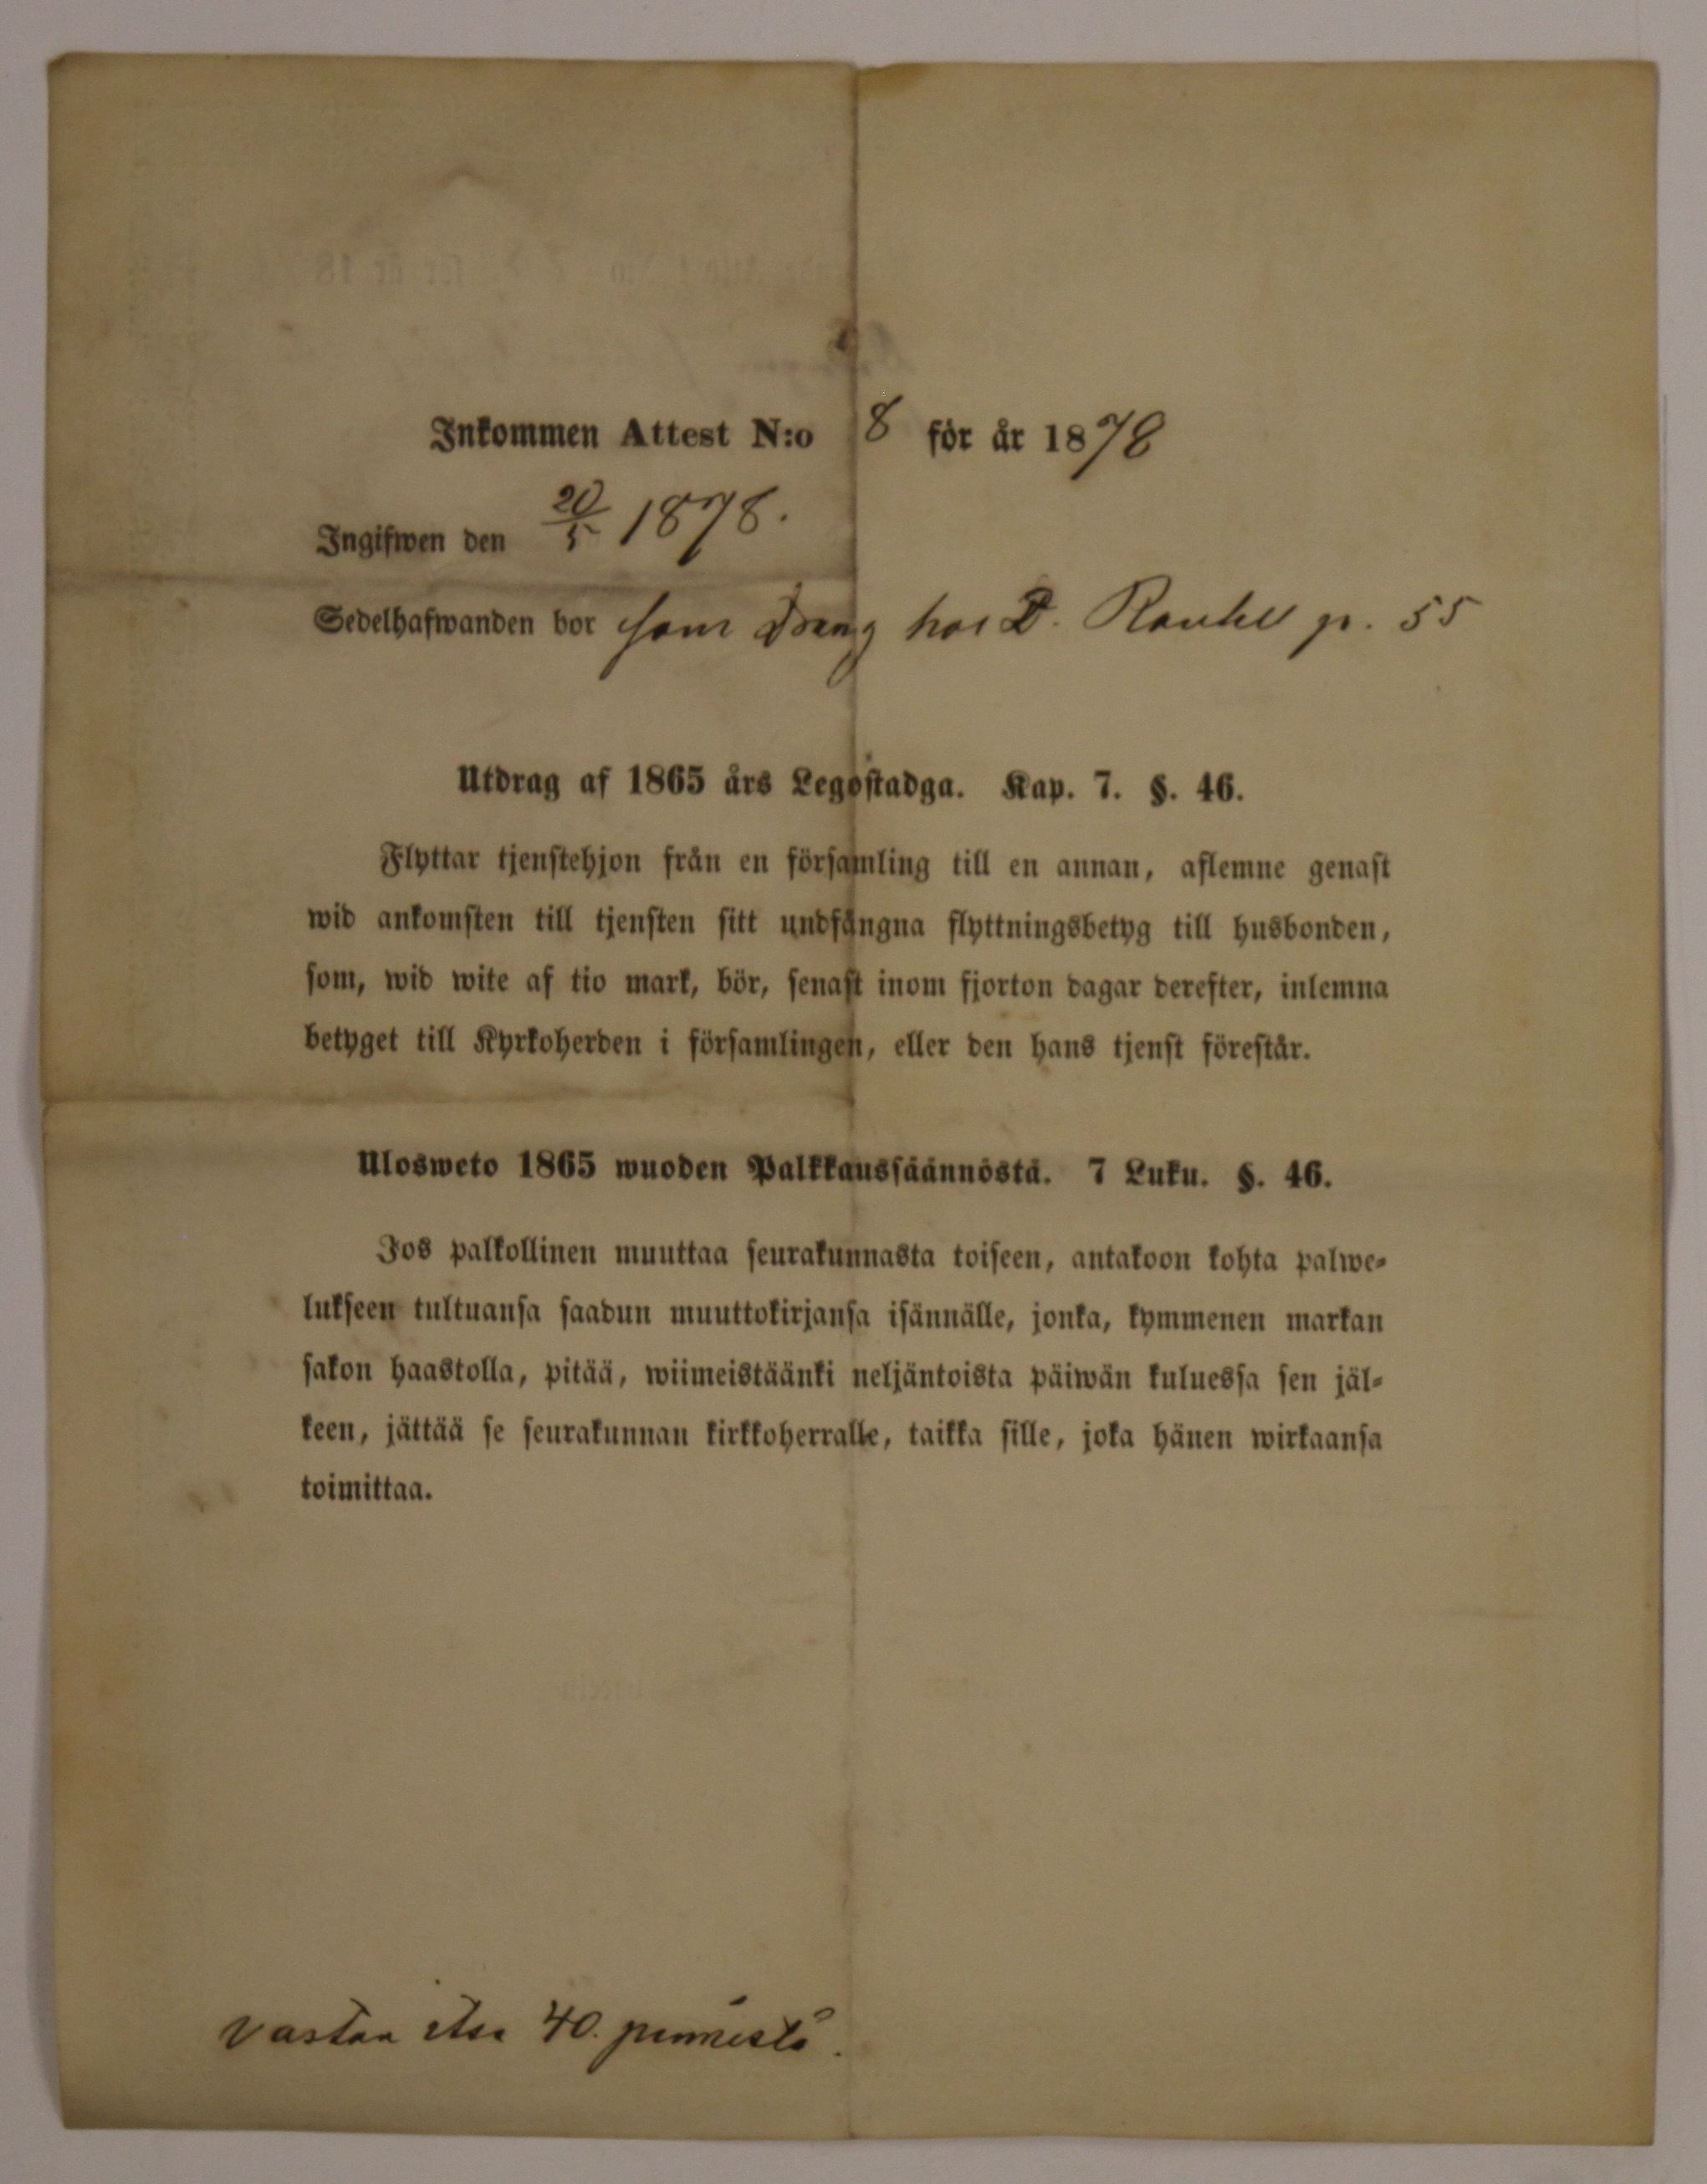 Inkommen Attest N:o 8 för år 1878
Ingifwen den 20/5 1878.
Sedelhafwanden bor som Dräng hos D. Rauhel p. 55
Utdrag af 1865 års Legostadga. Kap. 7. §. 46.
Flyttar tjenstehjon från en församling till en annan, aflemne genast
wid ankomsten till tjensten sitt undfångna flyttningsbetyg till husbonden,
som, wid wite af tio mark, bör, senast inom fjorton dagar derefter, inlemna
betyget till Kyrkoherden i församlingen, eller den hans tjenst förestår.
Ulosweto 1865 wuoden Palkkaussäännöstä. 7 Luku. §. 46.
Jos palkollinen muuttaa seurakunnasta toiseen, antakoon kohta palwe-
lukseen tultuansa saadun muuttokirjansa isännälle, jonka, kymmenen markan
sakon haastolla, pitää, wiimeistäänki neljäntoista päiwän kuluessa sen jäl-
keen, jättää se seurakunnan kirkkoherralle, taikka sille, joka hänen wirkaansa
toimittaa.
vastan 40. pennistä.